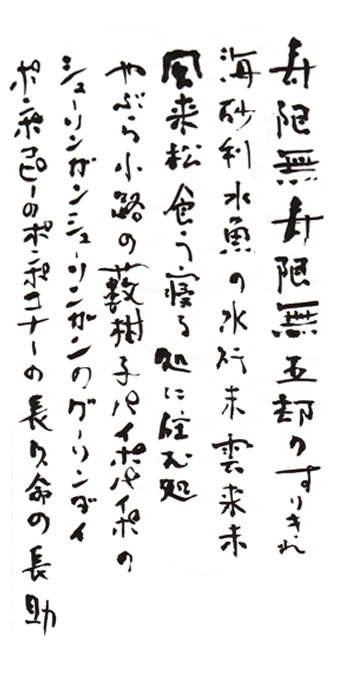 寿限無寿限無五却のすりきれ
海砂利水魚の水行末雲来末
風来松食う寝る処に住む処
やぶら小路の藪樹子パイポパイポの
シューリンガンシューリンガンのグーリンダイ
ポンポコピーのポンポコナーの長久命の長助